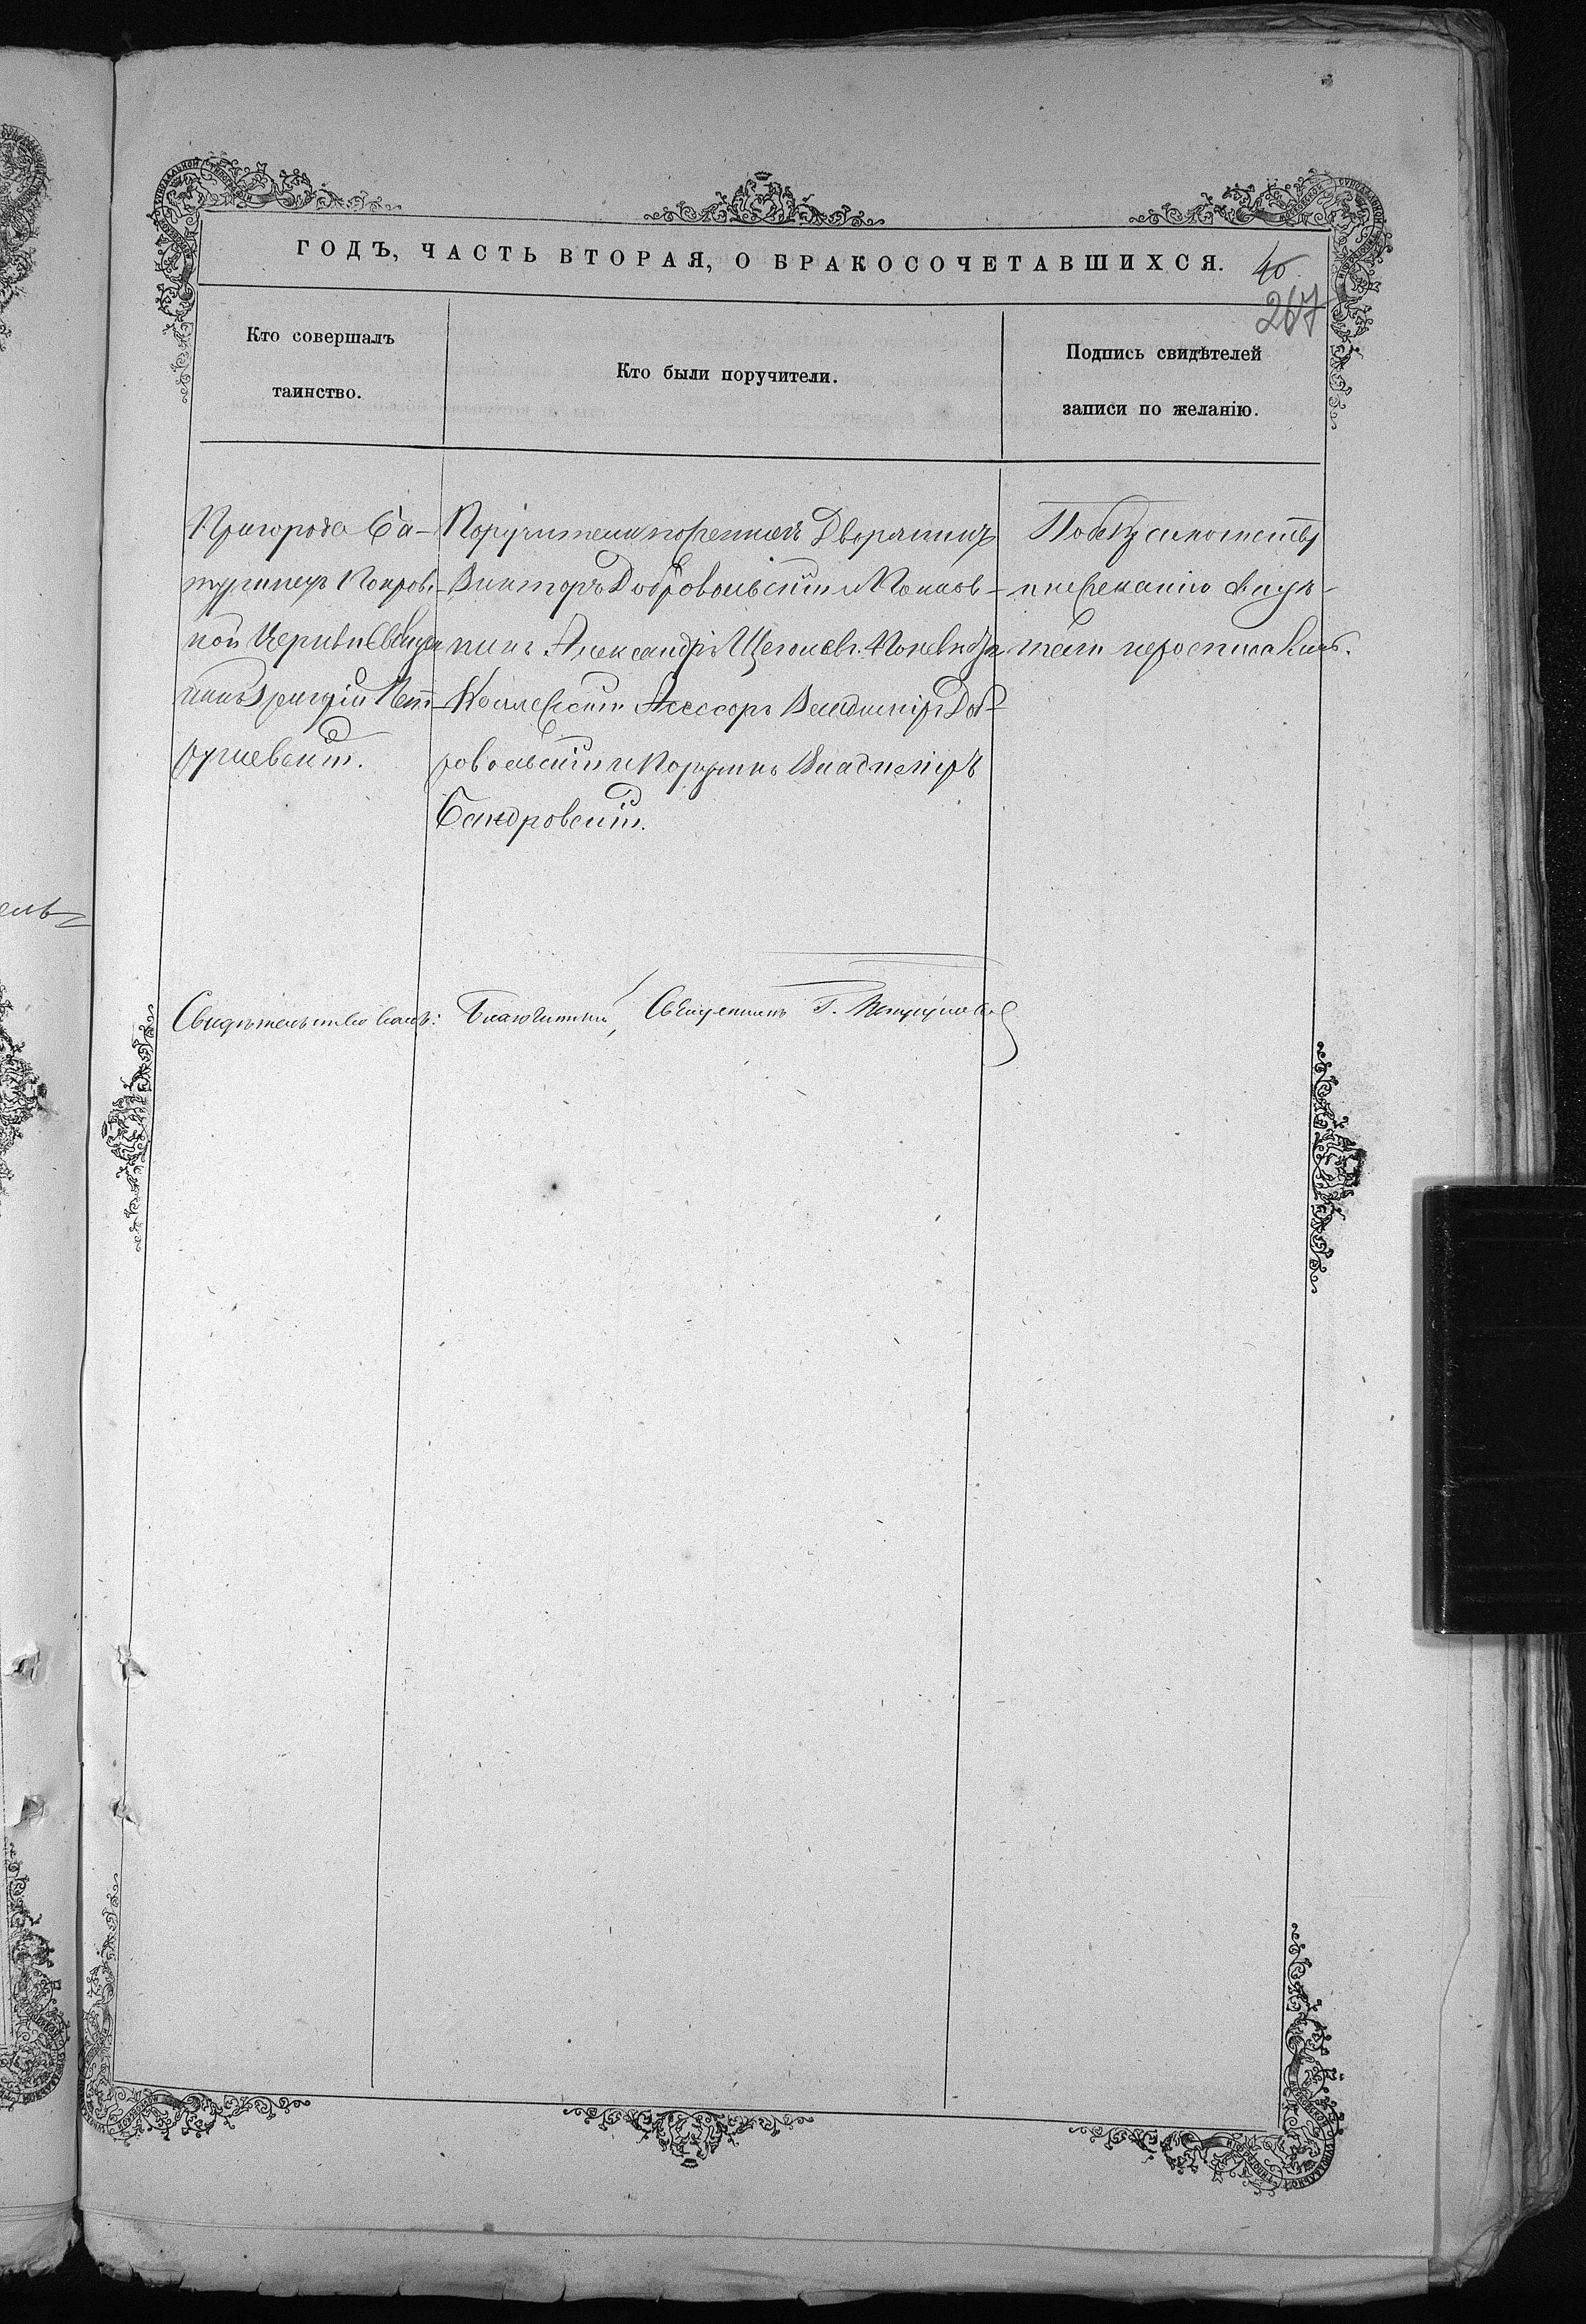 ГОДЪ, ЧАСТЬ ВТОРАЯ, О БРАКОСОЧЕТАВШИХСЯ.
40
267
Кто совершалъ
таинство.
Кто были поручители.
Подпись свидѣтелей
записи по желанію.
Пригорода Ба-
турина Покров-
ной Церкви Священ
никъ Григорій Пет
рушевскій.
Поручители по женихѣ Дворянинъ
Викторъ Добровольскій и
Александръ Щеголевъ. По невѣстѣ
Коллежскій Ассесоръ Владиміръ Доб-
ровольскій и Поручикъ Владиміръ
Бандровскій.
По безграмотству
и нежеланію свидѣ-
тели не росписались.
Свидѣтельствовалъ: Благочинный, Священникъ Г.